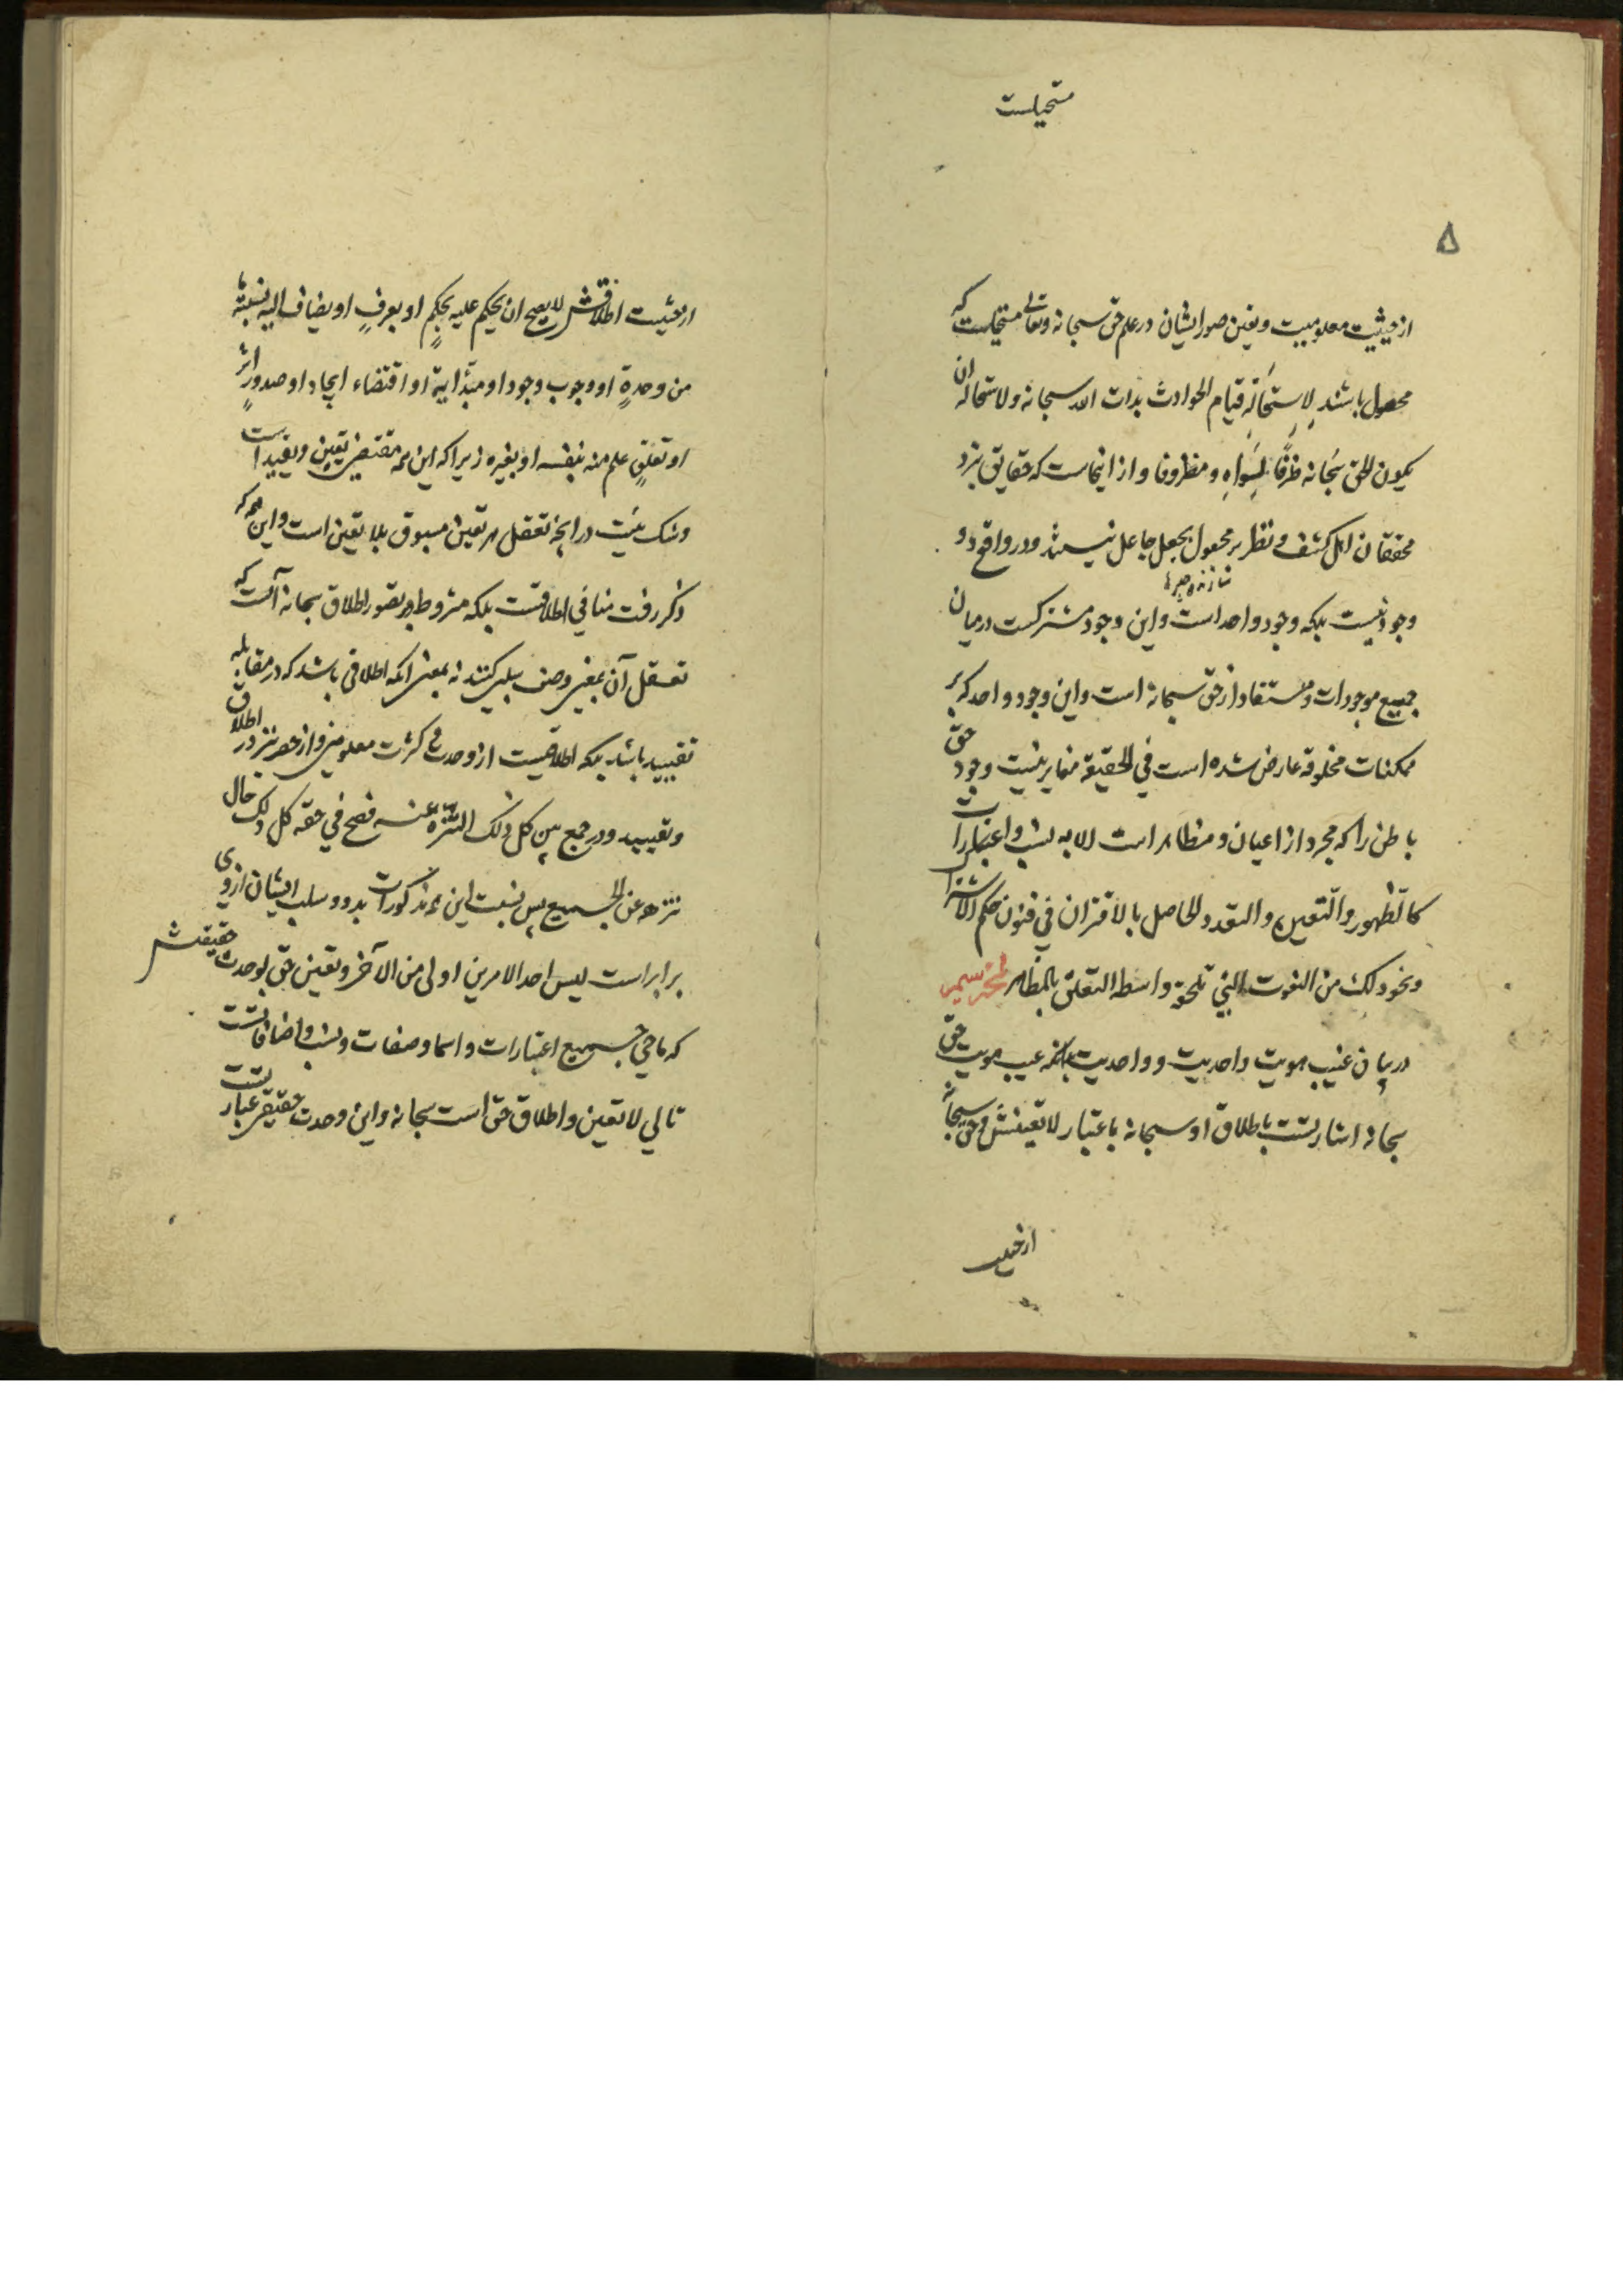 مستحیلست
۸
از حیثیت معلومیت و تعین صور ایشان در علم حق سبحانه و تعالی مستحیلست که
مجعول باشند لاستحالة قیام الحوادث بذات الله سبحانه ولاستحالة ان
یکون الحق سبحانه ظرفا لسواه و مظروفا و از اینجاست که حقایق نزد
محققان اهل کشف و نظر مجعول بجعل جاعل نیستند و در واقع دو
وجود نیست بلکه وجود واحد است و این وجود مشترکست در میان
جمیع موجودات و مستفاد از حق سبحانه است و این وجود واحد که بر
ممکنات مخلوقه عارض شده است فی الحقیقة مغایر نیست وجود حق
باطن را که مجرد از اعیان و مظاهر است الا به نسب و اعتبارات
کالظهور والتعین والتعدد الحاصل بالاقتران فی قبول حکم الاشتراک
ونحو ذلک من النعوت التی تلحقه بواسطة التعلق بالمظاهر
در بیان غیب هویت و احدیت و واحدیت بدانکه غیب هویت حق
سبحانه اشارتست باطلاق او سبحانه باعتبار لا تعینش و حق سبحانه
از حیثیت
از حیثیت اطلاقش لا یصح ان یحکم علیه بحکم او یعرف او یضاف الیه نسبة ما
من وحدة او وجوب وجود او مبدأیة او اقتضاء ایجاد او صدور اثر
او تعلق علم منه بنفسه او بغیره زیرا که این همه مقتضی تعین و تقیید است
و شک نیست در آنچه تعقل هر تعین مسبوق بلا تعین است و این همه که
ذکر رفت منافی اطلاقست بلکه مشروط بر تصور اطلاق سبحانه آنست که
تعقل آن بمعنی وصف سلبی کنند نه بمعنی آنکه اطلاقی باشد که در مقابله
تقیید باشد بلکه اطلاقیست از وحدت و کثرت معلومین و از حصر نیز در اطلاق
و تقیید و در جمع بین کل ذلک التنزه عنه فصح فی حقه کل ذلک حال
تنزهه عن الجمیع پس نسبت این همه مذکورات بدو و سلب ایشان از وی
برابر است لیس احد الامرین اولی من الآخر و تعین حق بوحدت حقیقیش
که ماحی جمیع اعتبارات و اسما و صفات و نسب و اضافاتست
تالی لا تعین و اطلاق حق است سبحانه و این وحدت حقیقی عبارتست